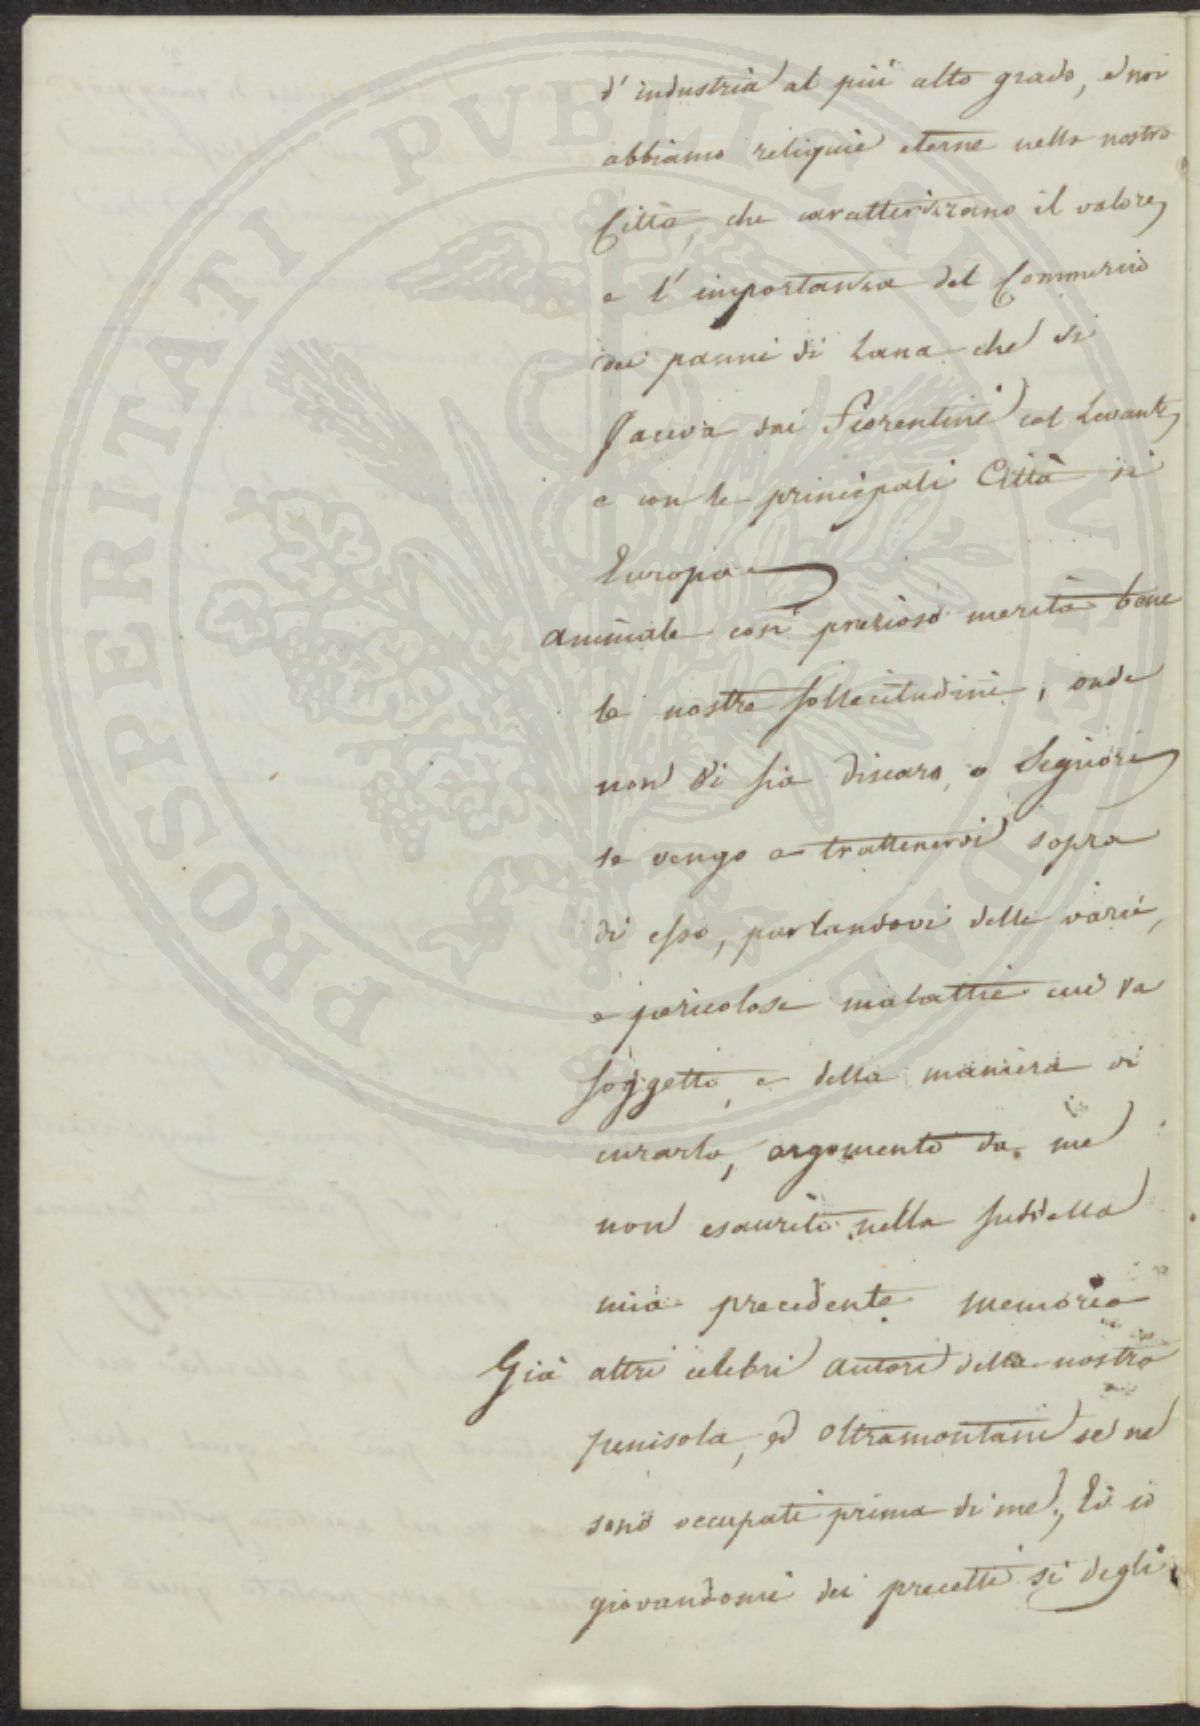 d'industria al più alto grado, e noi
abbiamo reliquie eterne nella nostra
Città, che caratterizzano il valore,
e l'importanza del Commercio
dei panni di Lana che si
faceva dai Fiorentini col Levante,
e con le principali Città di
Europa
Animale così prezioso merita bene
le nostre sollecitudini, onde
non Vi sia discaro, o Signori,
se vengo a trattenervi sopra
di esso, parlandovi delle varie,
e pericolose malattie cui va
soggetto, e della maniera di
curarlo, argomento da me
non esaurito nella suddetta
mia precedente memoria
Già altri celebri autori della nostra
penisola, ed oltramontani se ne
sono occupati prima di me, Ed io
giovandomi dei precetti sì degli
PROSPERITATI PVBLICAE AVGENDAE